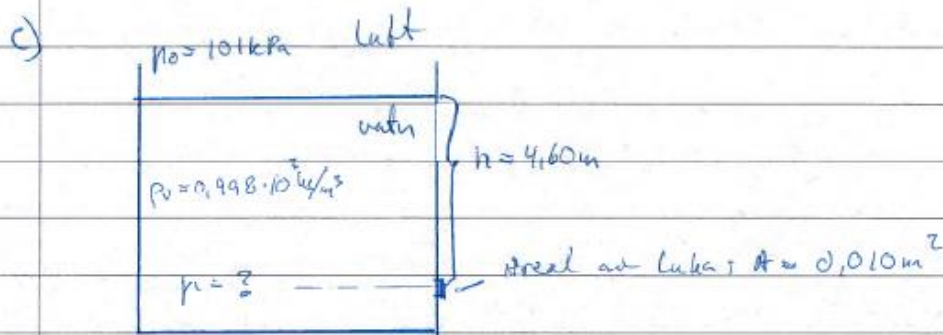 c)
p₀ = 101 kPa luft
vatn
h = 4,60 m
ρᵥ = 0,998·10³ kg/m³
p = ?
Areal av luka: A = 0,010 m²